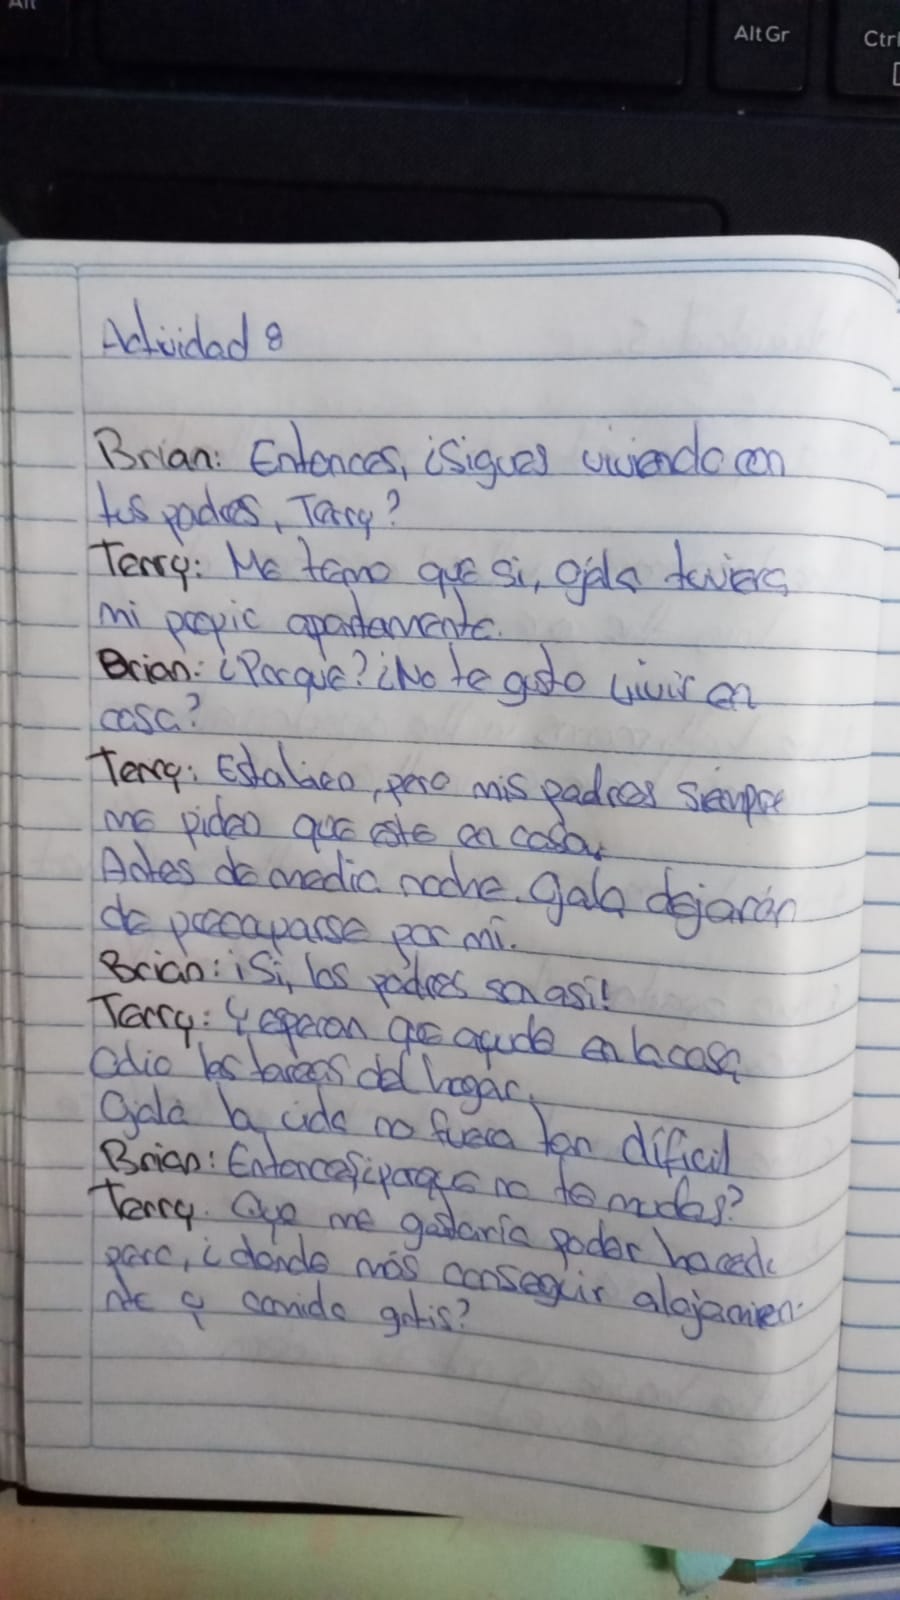 Alt
Alt Gr
Ctrl
Actividad 8
Brian: Entonces, ¿Sigues viviendo con
tus padres, Terry?
Terry: Me temo que si, Ojala tuviera
mi propio apartamento.
Brian: ¿Porque? ¿No te gusto vivir en
casa?
Terry: Esta bien, pero mis padres siempre
me piden que este en casa.
Antes de media noche. Ojala dejarán
de preocuparse por mi.
Brian: ¡Si, los padres son asi!
Terry: Y esperan que ayude en la casa
Odio las tareas del hogar.
Ojalá la vida no fuera tan dificil
Brian: Entonces ¿porque no te mudas?
Terry. Oye me gustaria poder hacerlo
pero, ¿donde más conseguir alojamien-
to y comida gatis?